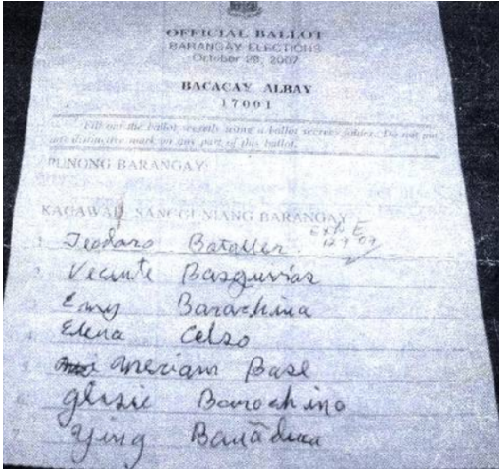 OFFICIAL BALLOT
BARANGAY ELECTIONS
October 29, 2007
BACACAY ALBAY
17001
Fill out the ballot secretly using a ballot secrecy folder. Do not put
any distinctive mark on any part of this ballot.
PUNONG BARANGAY
KAGAWAD, SANGGUNIANG BARANGAY
Exh E
1. Teodoro Bataller
2. Vecente Basquinas
3. Emy Barachina
4. Elena Celso
5. Meriam Base
6. Glozie Barochino
7. Ying